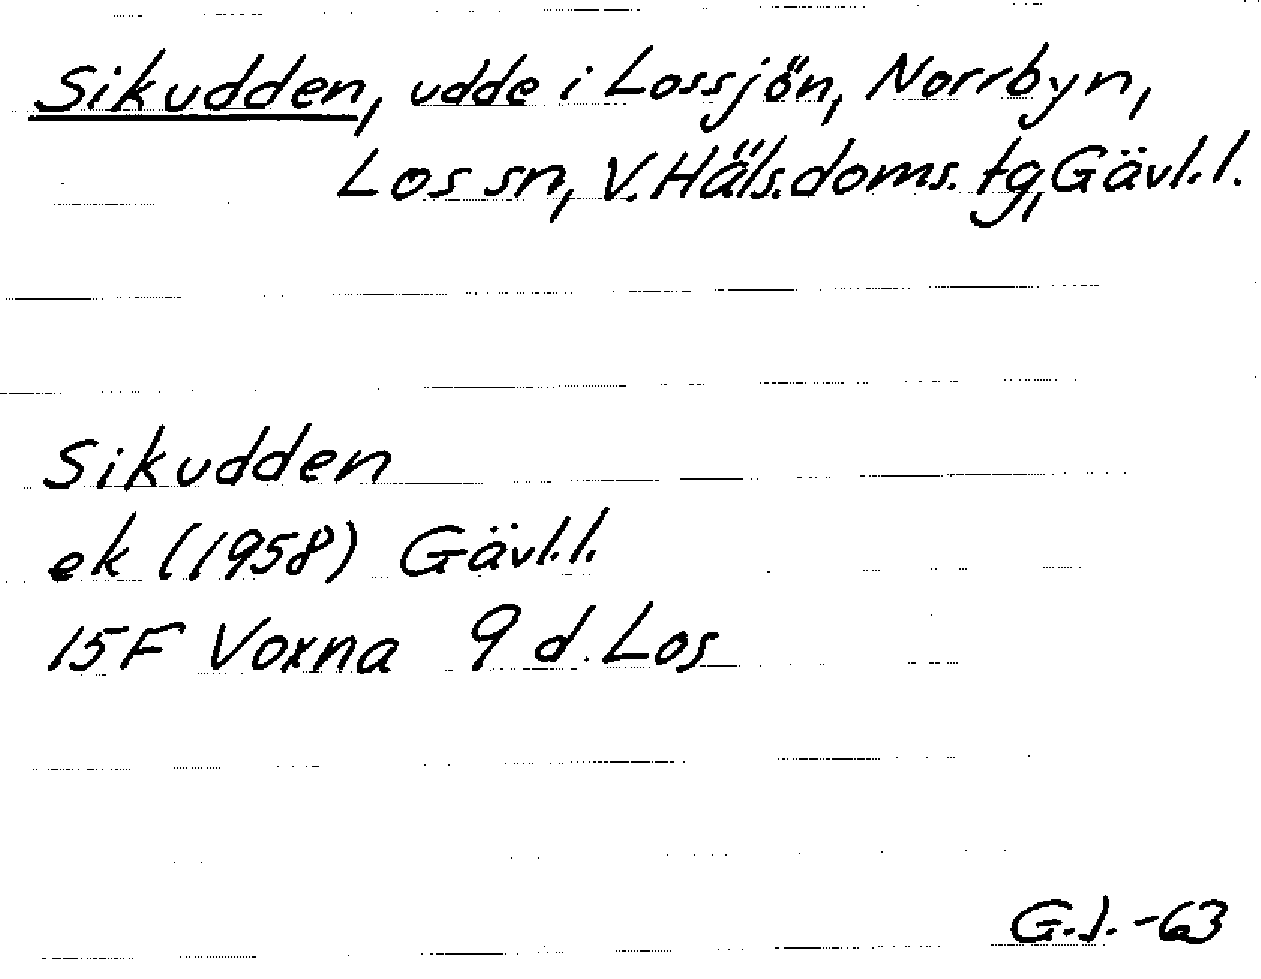 Sikudden, udde i Lossjön, Norrbyn,
Los sn, V. Häls. doms. tg, Gävl. l.
Sikudden
ek (1958) Gävl. l.
15F Voxna 9 d. Los
G.J. -63